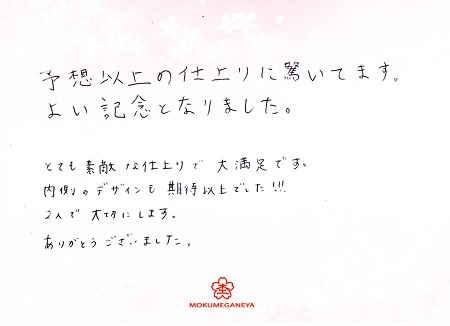 予想以上の仕上りに驚いてます。
よい記念となりました。
とても素敵な仕上りで大満足です。
内側のデザインも期待以上でした!!!
2人で大切にします。
ありがとうございました。
MOKUMEGANEYA